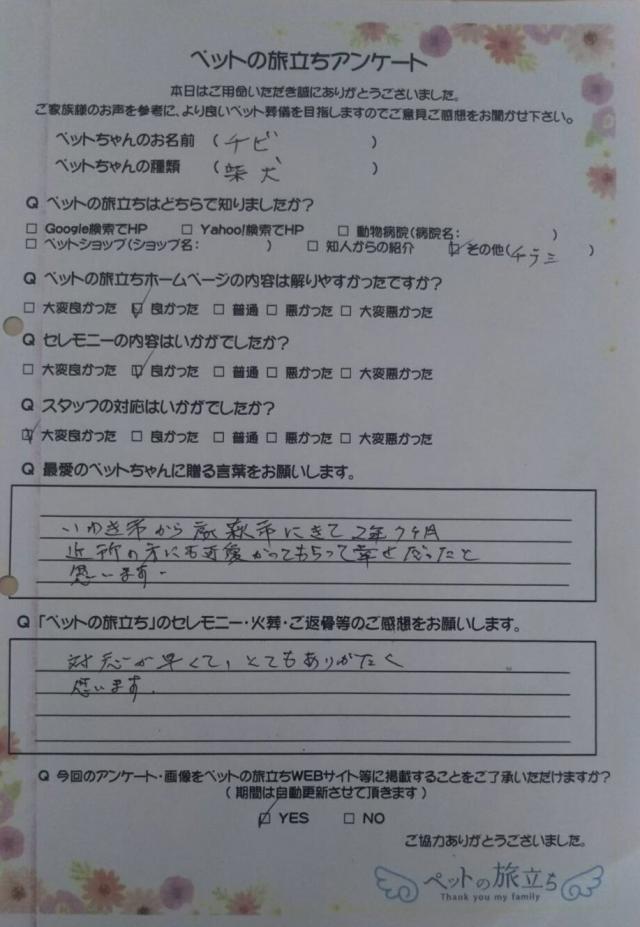 ペットの旅立ちアンケート
本日はご用命いただき誠にありがとうございました。
ご家族様のお声を参考に、より良いペット葬儀を目指しますのでご意見ご感想をお聞かせ下さい。
ペットちゃんのお名前 （ チビ ）
ペットちゃんの種類 （ 柴犬 ）
Q ペットの旅立ちはどちらで知りましたか？
□ Google検索でHP □ Yahoo!検索でHP □ 動物病院（病院名： ）
□ ペットショップ（ショップ名： ） □ 知人からの紹介 ☑ その他（チラシ ）
Q ペットの旅立ちホームページの内容は解りやすかったですか？
□ 大変良かった ☑ 良かった □ 普通 □ 悪かった □ 大変悪かった
Q セレモニーの内容はいかがでしたか？
□ 大変良かった ☑ 良かった □ 普通 □ 悪かった □ 大変悪かった
Q スタッフの対応はいかがでしたか？
☑ 大変良かった □ 良かった □ 普通 □ 悪かった □ 大変悪かった
Q 最愛のペットちゃんに贈る言葉をお願いします。
いわき市から 萩市にきて 2年7ヶ月
近所の方にも可愛がってもらって幸せだったと
思います。
Q 「ペットの旅立ち」のセレモニー・火葬・ご返骨等のご感想をお願いします。
対応が早くて、とてもありがたく
思います。
Q 今回のアンケート・画像をペットの旅立ちWEBサイト等に掲載することをご了承いただけますか？
（ 期間は自動更新させて頂きます ）
☑ YES □ NO
ご協力ありがとうございました。
ペットの旅立ち
Thank you my family